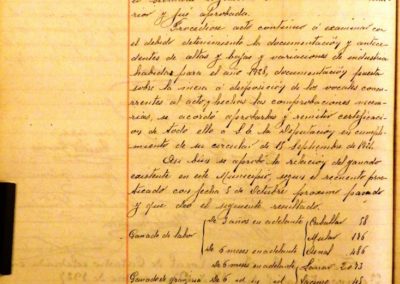 rior y fué aprobada.
Procedióse acto continuo á examinar con
el debido detenimiento la documentación y antece-
dentes de altas y bajas y variaciones de industria
habidas para el año 1921, documentación puesta
sobre la mesa á disposición de los vocales concu-
rrentes al acto, y hechas las comprobaciones necesa-
rias, se acordó aprobarlas y remitir certificacio-
nes de todo ello á la Diputación en cumpli-
miento de su circular de 15 Septiembre de 1921.
Asi bien se aprobó la relación del ganado
existente en este Municipio, según el recuento prac-
ticado con fecha 5 de Octubre próximo pasado
y que dio el siguiente resultado.
de 3 años en adelante Caballar 58
Ganado de labor Mular 136
de 6 meses en adelante Asnal 486
de 6 meses en adelante Lanar 2073
Ganado de granjería de 6 id